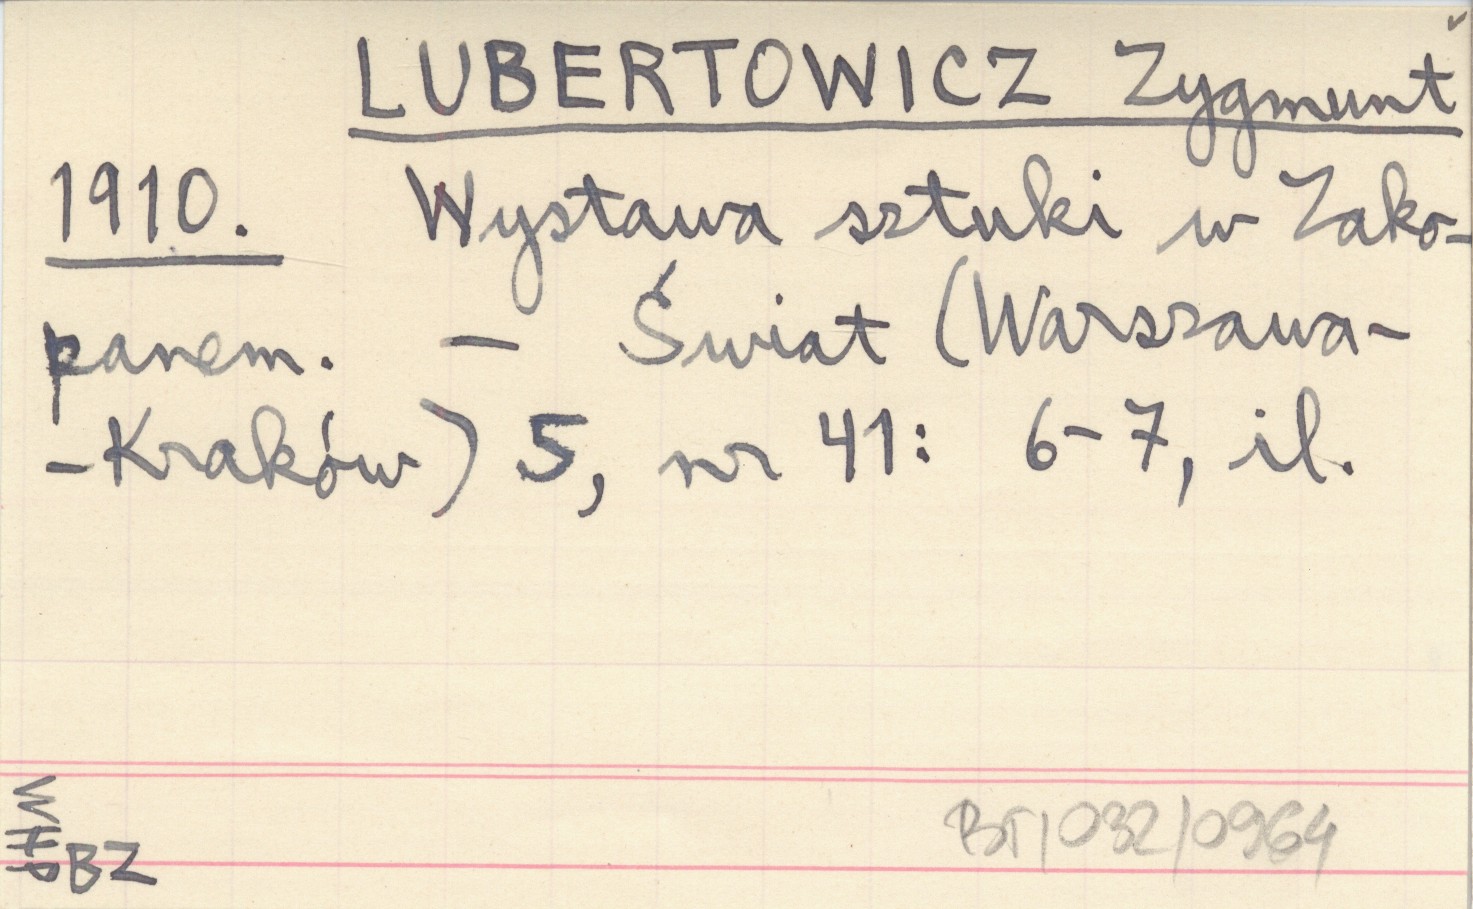 LUBERTOWICZ Zygmunt
1910. Wystawa sztuki w Zako-
panem. — Świat (Warszawa-
-Kraków) 5, nr 41: 6-7, il.
BZ
BT/032/0964